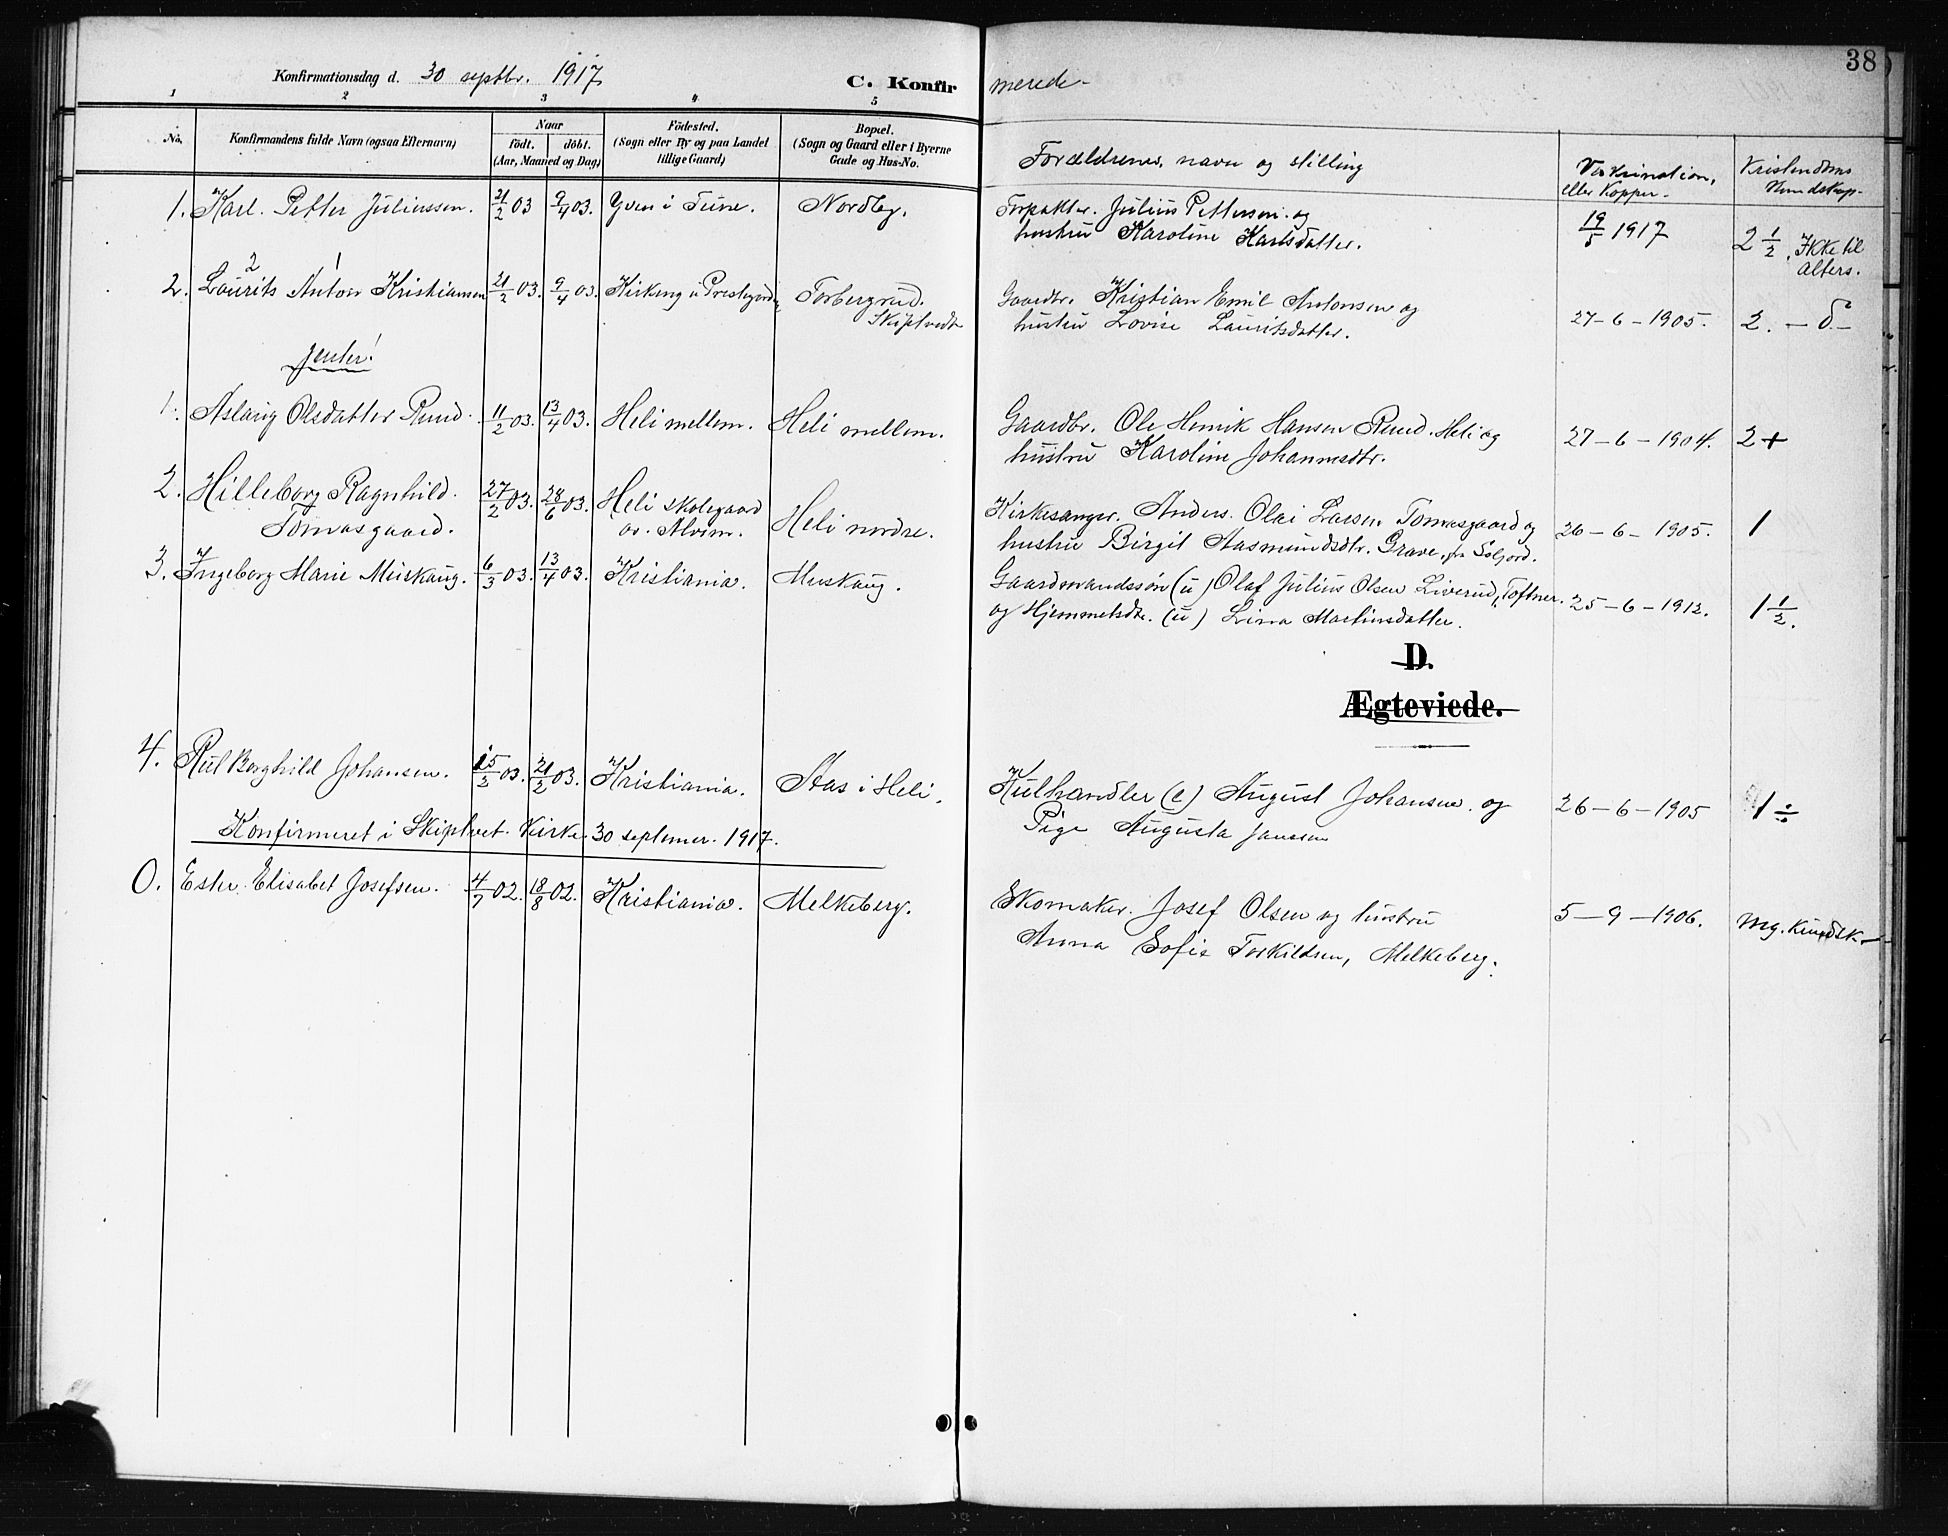 38
Konfirmationsdag d. 30 septbr. 1917 C. Konfirmerede
1 2 3 4 5
No. Konfirmandens fulde Navn (ogsaa Efternavn) Naar födt. döbt. (Aar, Maaned og Dag) Födested. (Sogn eller By og paa Landet tillige Gaard) Bopæl. (Sogn og Gaard eller i Byerne Gade og Hus-No. Forældrenes navn og stilling Vakcination, eller Kopper. Kristendoms Kundskap.
1. Karl Petter Juliussen. 21/2 03 9/4 03. Yven i Tune. Nordby. Forpakter. Julius Pettersen og
hustru Karoline Karlsdatter. 19/5 1917 2 1/2. Ikke til
alters.
2 1
2. Laurits Anton Kristiansen 21/2 03. 9/4 03. Kirkeng u Prestegarden Torbergrud. Gaardbr. Kristian Emil Antonsen og
Skiptvedt hustru Lovise Lauritsdatter. 27-6-1905. 2. - d -
Jenter!
1. Aslaug Olsdatter Ruud. 11/2 03. 13/4 03. Heli mellem. Heli mellem. Gaardbr. Ole Henrik Hansen Ruud. Heli og
hustru Karoline Johannesdtr. 27-6-1904. 2+
2. Hilleborg Ragnhild 27/2 03. 28/6 03. Heli skolegaard Heli nordre. Kirkesanger. Anders Olai Larsen Tomasgaard og
Tomasgaard. av. Alvim. hustru Birgit Aasmundsdtr. Grave, fr Seljord. 26-6-1905. 1
3. Ingeborg Marie Muskaug. 6/3 03. 13/4 03. Kristiania. Muskaug. Gaardmandssøn (u) Olaf Julius Olsen Liverud, Toftner.
og Hjemmetsdtr. (u) Lina Martinsdatter. 25-6-1912. 1 1/2.
D.
Ægteviede.
4. Rut Borghild Johansen. 15/2 03. 21/2 03. Kristiania. Aas i Heli. Kulhandler (e) August Johansen og
Pige Augusta Janssen 26-6-1905 1 ÷
Konfirmeret i Skiptvet Kirke 30 septemer. 1917.
0. Ester Elisabet Josefsen. 4/7 02. 18/8 02. Kristiania. Melkeberg. Skomaker. Josef Olsen og hustru
Anna Sofie Torkildsen, Melkeberg. 5-9-1906. Mg. Kundsk-